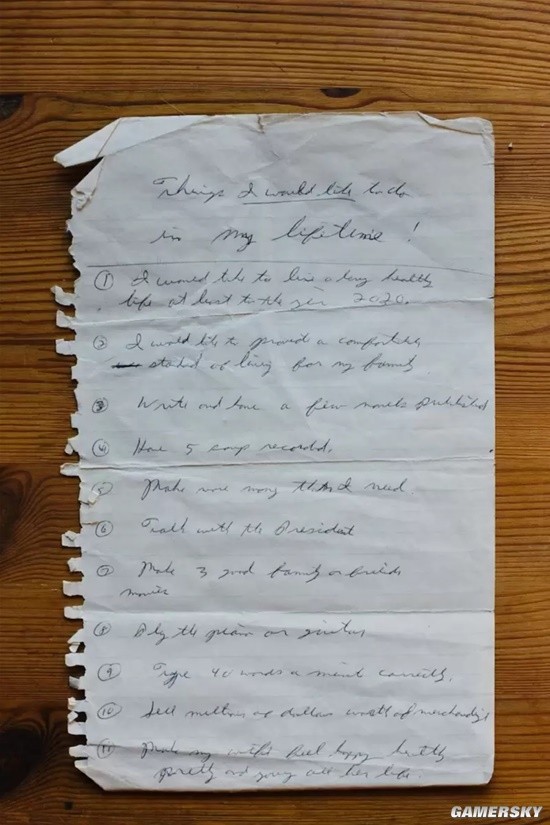 Things I would like to do
in my lifetime!
① I would like to live a long healthy
life at least to the year 2020.
② I would like to provide a comfortable
standard of living for my family
③ Write and have a few novels published
④ Have 5 songs recorded.
⑤ Make more money than I need.
⑥ Talk with the President
⑦ Make 3 good family or
movies
⑧ Play the piano or guitar
⑨ Type 40 words a minute correctly.
⑩ Sell millions of dollars worth of merchandise
⑪ Make my wife feel happy healthy
pretty and young all her life.
GAMERSKY